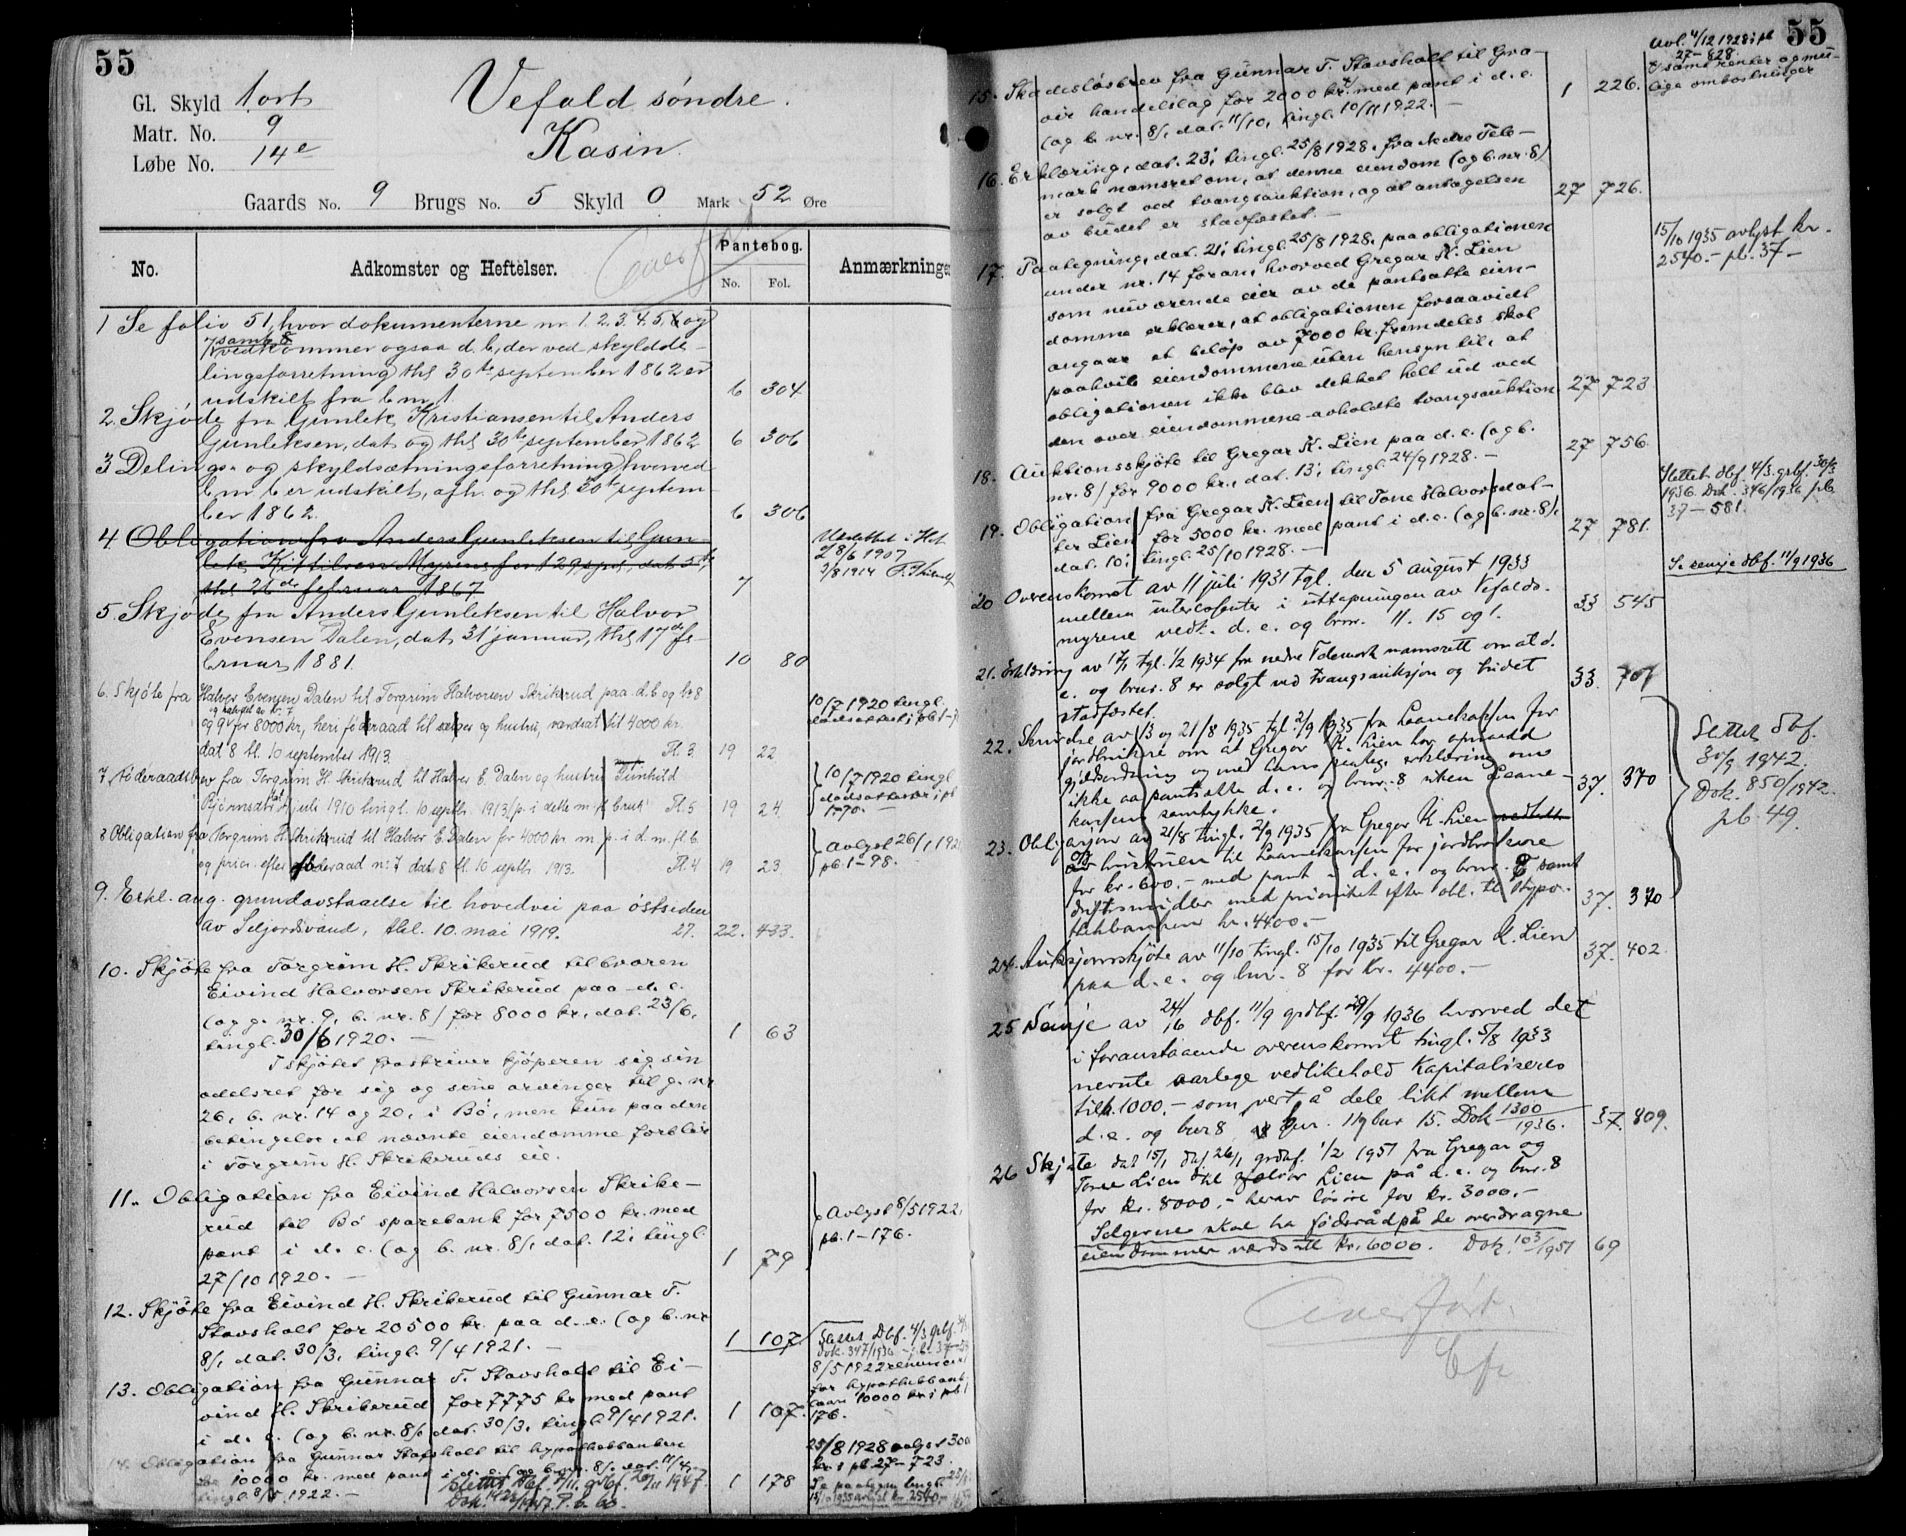 55
Gl. Skyld 1 ort
Matr. No. 9
Løbe No. 14e
Vefald søndre.
Kasin.
Gaards No. 9 Brugs No. 5 Skyld 0 Mark 52 Øre
Overført
No. Adkomster og Heftelser. Pantebog. No. Fol. Anmærkninger
1 Se folio 51, hvor dokumenterne nr 1. 2. 3. 4. 5, 6 og
7 samt 8 vedkommer ogsaa d. b, der ved skyldde-
lingsforretning thl 30te september 1862 er
udskilt fra b nr 1. 6 304
2. Skjøde fra Gunlek Kristiansen til Anders
Gunleksen, dat og thl 30te september 1862 6 306
3 Delings- og skyldsætningsforretning, hvorved
b nr 6 er udskilt, afh. og thl 30te septem-
ber 1862. 6 306
4. Obligation fra Anders Gunleksen til Gun-
lek Kittilsen Myrene for 129 spd, dat 5te,
thl 26de februar 1867 7
Udslettet i H.t.
8/6 1907
5. Skjøde fra Anders Gunleksen til Halvor
Evensen Dalen, dat 31 januar, thl 17de fe-
bruar 1881. 10 80
6. Skjøte fra Halvor Evensen Dalen til Torgrim Halvorsen Skrikerud paa d. b og br 8
og halvdel av nr. 7
og 9 for 8000 kr, heri føderaad til sælger og hustru, værdsat til 4000 kr.
dat 8 tl. 10 september 1913. Fl. 3. 19 22
10/7 1920 tingl.
dødsattest i pb 1-
7. Føderaadsbrev fra Torgrim H. Skrikerud til Halvor E. Dalen og hustru Gunhild
Bjørnsdtr juli 1910 tingl. 10 septbr 1913 p. i dette m. fl. bruk Fl. 5 19 24.
10/7 1920 tingl.
dødsattester i pb
1-70.
8 Obligation fra Torgrim H. Skrikerud til Halvor E. Dalen for 4000 kr m p. i d. m. fl. b.
og prior. efter føderaad nr 7 dat 8 tl. 10 septbr 1913. Fl. 4 19 23
Avlyst 26/1 192
pb. 1-98.
9. Erkl. ang. grundavstaaelse til hovedvei paa østsiden
av Seljordsvand, tbl. 10. mai 1919. 27. 22. 433.
10. Skjøte fra Torgrim H. Skrikerud til broren
Eivind Halvorsen Skrikerud paa d. e.
(og g. nr. 9, b. nr. 8) for 8000 kr., dat. 23/6,
tingl. 30/6 1920. — 1 63
I skjøtet fraskriver kjøperen sig sin
odelsret for sig og sine arvinger til g. nr
26, b. nr. 14 og 20, i Bø, men kun paa den
betingelse, at nævnte eiendomme forblir
i Torgrim H. Skrikeruds eie.
11. Obligation fra Eivind Halvorsen Skrike-
rud til Bø sparebank for 7500 kr. med
pant i d. e. (og b. nr. 8), dat. 12, tingl.
27/10 1920. — 1 79
Avlyst 8/5 1922,
pb. 1-176.
12. Skjøte fra Eivind H. Skrikerud til Gunnar T.
Stavsholt for 20500 kr. paa d. e. (og b. nr
8), dat. 30/3, tingl. 9/4 1921. — 1 107.
13. Obligation fra Gunnar T. Stavsholt til Ei-
vind H. Skrikerud for 7775 kr med pant
i d. e. (og b. nr. 8), dat. 30/3, tingl. 9/4 1921. 1 107.
Dbf. 4/3 grbf.
Dok. 347/1936
8/5 1922
for hypothekbank-
laan 10000 kr i pb. 1
176.
14. Obligation fra Gunnar Stavsholt til hypothekbanken
for 10000 kr. med pant i d. e. (og b. nr. 8), dat. 11/4,
tingl. 8/5 1922. — 1 178
Slettet dbf. 7/11. grdbf. 20/11 1947
Dok. 1423/1947 P. b. 60.
25/8 1928 avlyst 3000
kr. i pb. 27-723.
Se paategn. tingl. 25/8
15/10 1935 avlyst kr. 2540.-
55
15. Skadesløsbrev fra Gunnar T. Stavsholt til Gra-
ver handelslag for 2000 kr. med pant i d. e.
(og b. nr. 8), dat. 11/10, tingl. 10/11 1922. — 1 226.
Avl. 4/12 1928 i pb
27-828.
samt renter og mu-
lige omkostninger
16. Erklæring, dat. 23, tingl. 25/8 1928, fra Nedre Tele-
mark namsret om, at denne eiendom (og b. nr. 8)
er solgt ved tvangsauktion, og at antagelsen
av budet er stadfæstet. — 27 726.
17. Paategning, dat. 21, tingl. 25/8 1928, paa obligationen
under nr. 14 foran, hvorved Gregar K. Lien
som nuværende eier av de pantsatte eien-
domme erklærer, at obligationen forsaavidt
angaar et beløp av 7000 kr. fremdeles skal
paahvile eiendommene uten hensyn til, at
obligationen ikke blev dekket helt ud ved
den over eiendommene avholdte tvangsauktion 27 723
15/10 1935 avlyst kr.
2540.- pb. 37-
18. Auktionsskjøte til Gregar K. Lien paa d. e. (og b.
nr. 8) for 9000 kr., dat. 13, tingl. 24/9 1928. — 27 756.
19. Obligation fra Gregar K. Lien til Tone Halvorsdat-
ter Lien for 5000 kr. med pant i d. e. (og b. nr. 8),
dat. 10, tingl. 25/10 1928. — 27 781.
Slettet. dbf. 4/3. grbf. 30/3
1936. Dok. 346/1936 pb.
37-581.
20 Overenskomst av 11 juli 1931 tgl. den 5 august 1933
mellem interessenter i uttapningen av Vefalds-
myrene vedk. d. e. og brnr. 11. 15 og 1. 33 545
Se semje dbf. 11/9 1936
21. Erklæring av 17/1 tgl. 1/2 1934 fra nedre Telemark namsrett om at d.
e. og brnr. 8 er solgt ved tvangsauksjon og budet
stadfæstet. 33. 701
22. Skrivelse av 13 og 21/8 1935 tgl. 2/9 1935 fra Laanekassen for
jordbrukere om at Gregor K. Lien har opnaadd
gjeldsordning og med hans paateg. erklæring om
ikke aa pantsatte d. e. og brnr. 8 uten Laane-
kassens samtykke. 37. 370
23. Obligasjon av 21/8 tingl. 2/9 1935 fra Gregor K. Lien
og hustruen til Laanekassen for jordbrukere
for kr. 600.- med pant i d. e. og brnr. 8 samt
driftsmidler med prioritet efter obl. til Hypo-
thekbanken kr. 4400.- 37. 370
Slettet dbf.
30/9 1942.
Dok. 850/1942.
pb. 49.
24. Auksjonsskjøte av 11/10 tingl. 15/10 1935 til Gregar K. Lien
paa d. e. og bnr. 8 for kr. 4400.- 37. 402.
25 Semje av 24/16 dbf. 11/9 grdbf. 29/9 1936 hvorved det
i foranstaaende overenskomst tingl. 5/8 1933
nevnte aarlege vedlikehold kapitaliseres
til kr. 1000.- som vert å dele likt mellem
d. e. og bnr 8, bnr. 11 og bnr 15. Dok 1300/1936. 37. 809.
26 Skjøte dat 15/1 dbf 26/1 grdbf. 1/2 1951 fra Gregar og
Tone Lien til Halvor Lien på d. e. og bnr. 8
for kr. 8000.- herav løsøre for kr. 3000.-
Selgerne skal ha føderåd på de overdragne
eiendommer verdsatt kr. 6000. Dok. 103/1951 69
Overført.